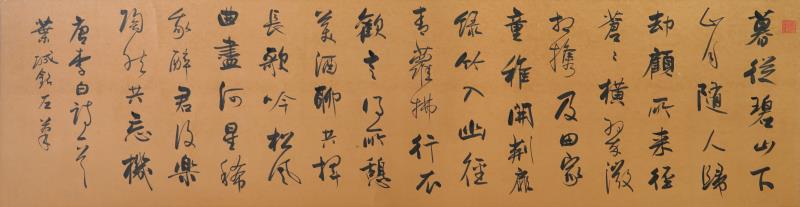 暮從碧山下
山月隨人歸
却顧所来径
蒼々横翠微
相携及田家
童稚開荆扉
绿竹入幽徑
青蘿拂行衣
歡言得所憩
美酒聊共揮
長歌吟松風
曲盡河星稀
我醉君復樂
陶然共忘機
唐李白詩一首
葉